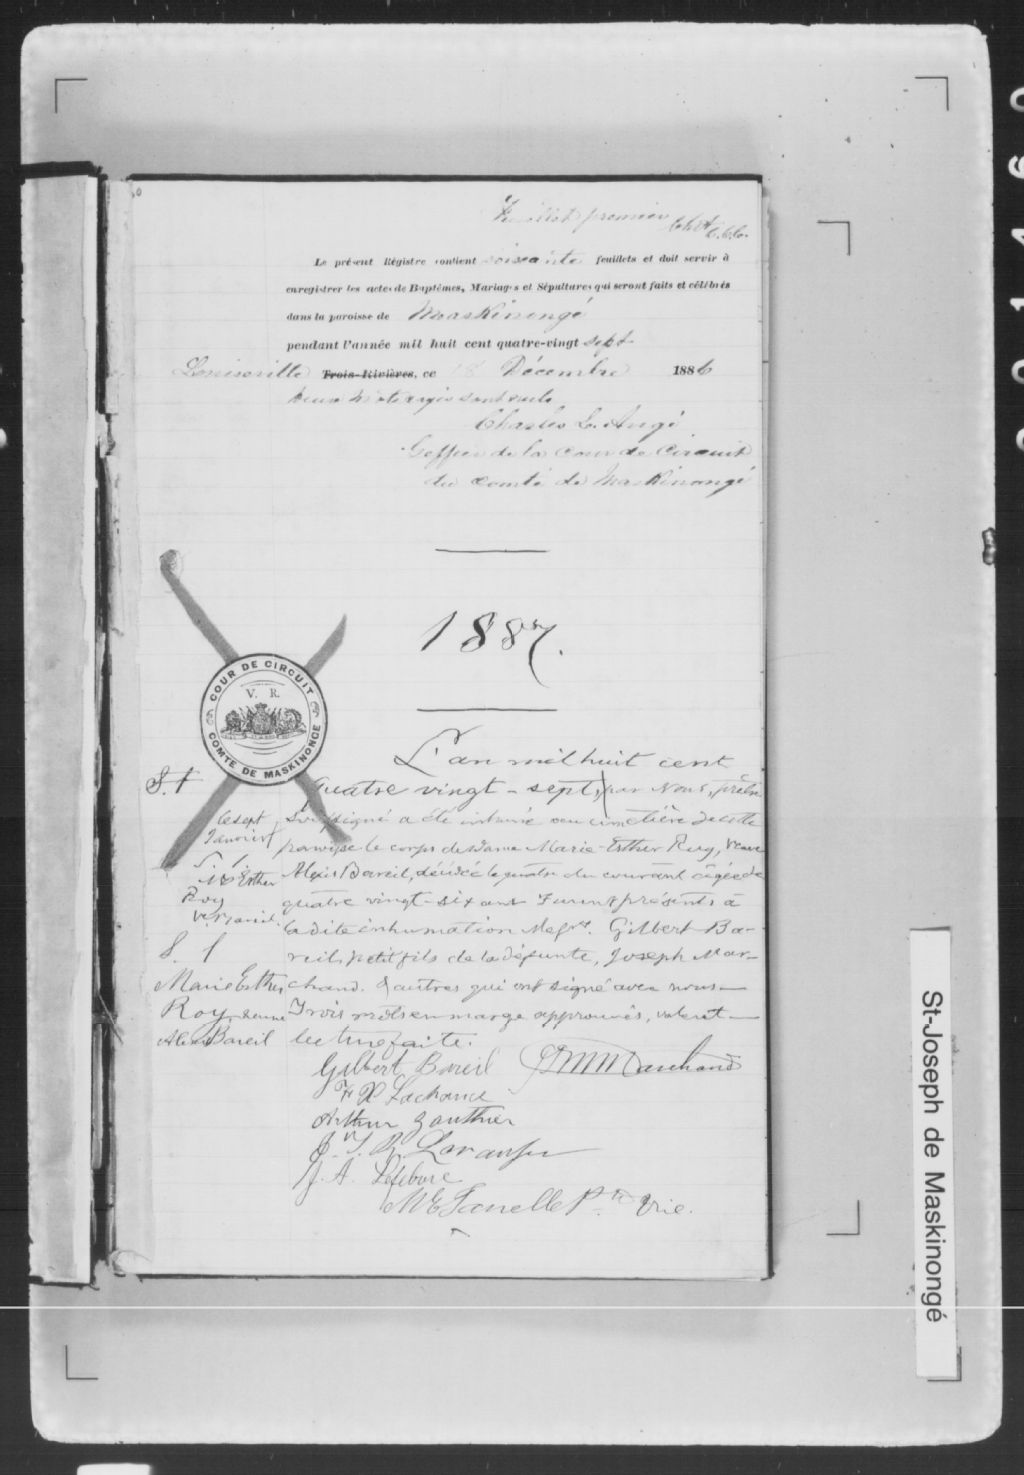 Feuillet premier
Le présent Régistre contient soixante feuillets et doit servir à
enregistrer les actes de Baptêmes, Mariages et Sépultures qui seront faits et célébrés
dans la paroisse de Maskinongé
pendant l'année mil huit cent quatre-vingt sept
Louiseville Trois-Rivières, ce 18 Décembre 1886
deux mots rayés sont nuls
Charles L. Augé
Greffier de la Cour de Circuit
du comté de Maskinongé
1887.
COUR DE CIRCUIT
V. R.
COMTE DE MASKINONGE
L'an mil huit cent
S. 1 quatre vingt-sept, par Nous, prêtre
le sept soussigné a été inhumé au cimetière de cette
Janvier paroisse le corps de Dame Marie-Esther Roy, veuve
S. 1.
M. Esther Alexis Bareil, décédée le quatre du courant âgée de
Roy quatre vingt-six ans Furent présents à
V. Bareil. la dite inhumation Messrs. Gilbert Ba-
S. 1 reil, petit fils de la défunte, Joseph Mar-
Marie Esther chand. & autres qui ont signé avec nous—
Roy, veuve Trois mots en marge approuvés, valent—
Alexis Bareil lecture faite.
Gilbert Bareil
Marchand
F X Lachance
Arthur Gauthier
J. A. Lefebvre
Ptre Vic.
St-Joseph de Maskinongé